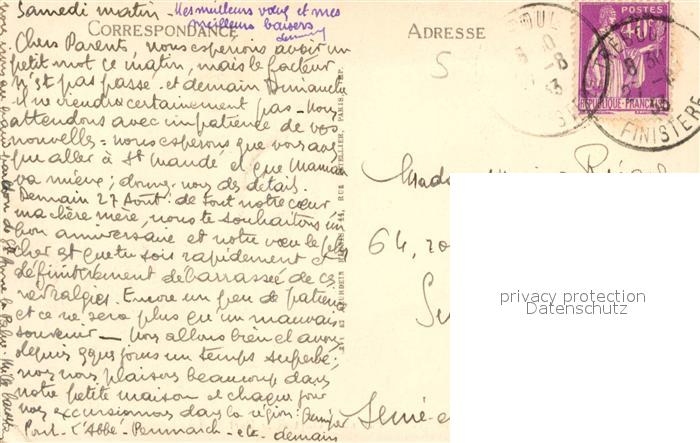 Samedi matin -
Mes meilleurs vœux et mes
meilleurs baisers
CORRESPONDANCE
Chers Parents, nous espérions avoir un
petit mot ce matin, mais le facteur
n'est pas passé - et demain Dimanche
il ne viendra certainement pas - nous
attendons avec impatience de vos
nouvelles - nous espérons que vous avez
pu aller à St Mandé et que Maman
va mieux; donnez-nous des détails.
Demain 27 Août de tout notre cœur,
ma chère mère, nous te souhaitons un
bon anniversaire et notre vœu le plus
cher est que tu sois rapidement et
définitivement débarrassée de ces
névralgies. Encore un peu de patience
et ce ne sera plus qu'un mauvais
souvenir - Nous allons bien et avons
depuis qques jours un temps superbe;
nous nous plaisons beaucoup dans
notre petite maison et chaque jour
nous excursionnons dans la région:
Pont-l'Abbé - Penmarch - etc - demain
ADRESSE
POSTES
40c
REPUBLIQUE FRANCAISE
FINISTERE
Mada
64, ro
Seine-e
privacy protection
Datenschutz